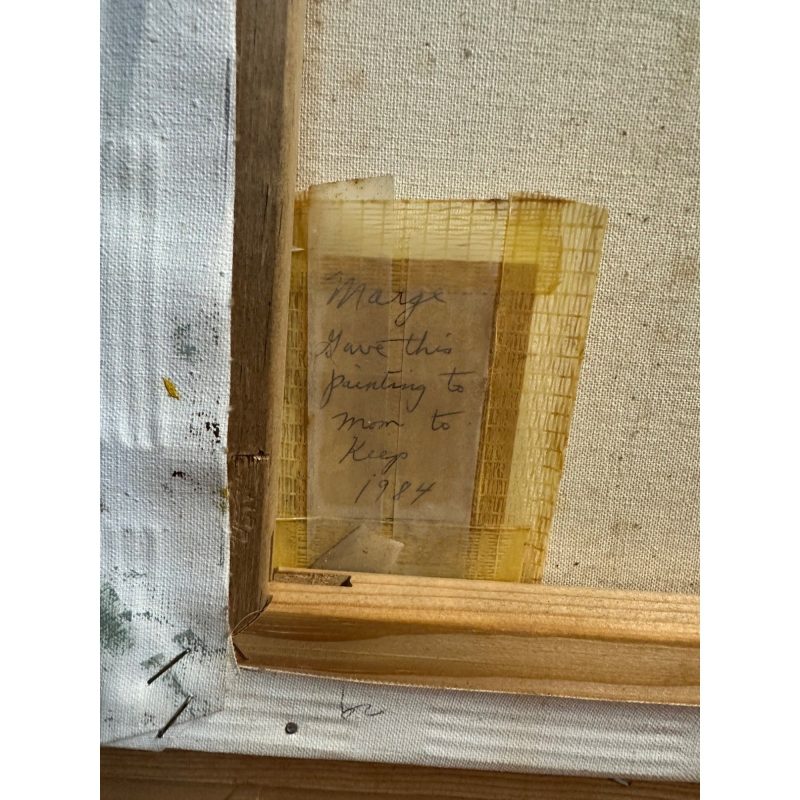 Marge
Gave this
painting to
mom to
Keep
1984